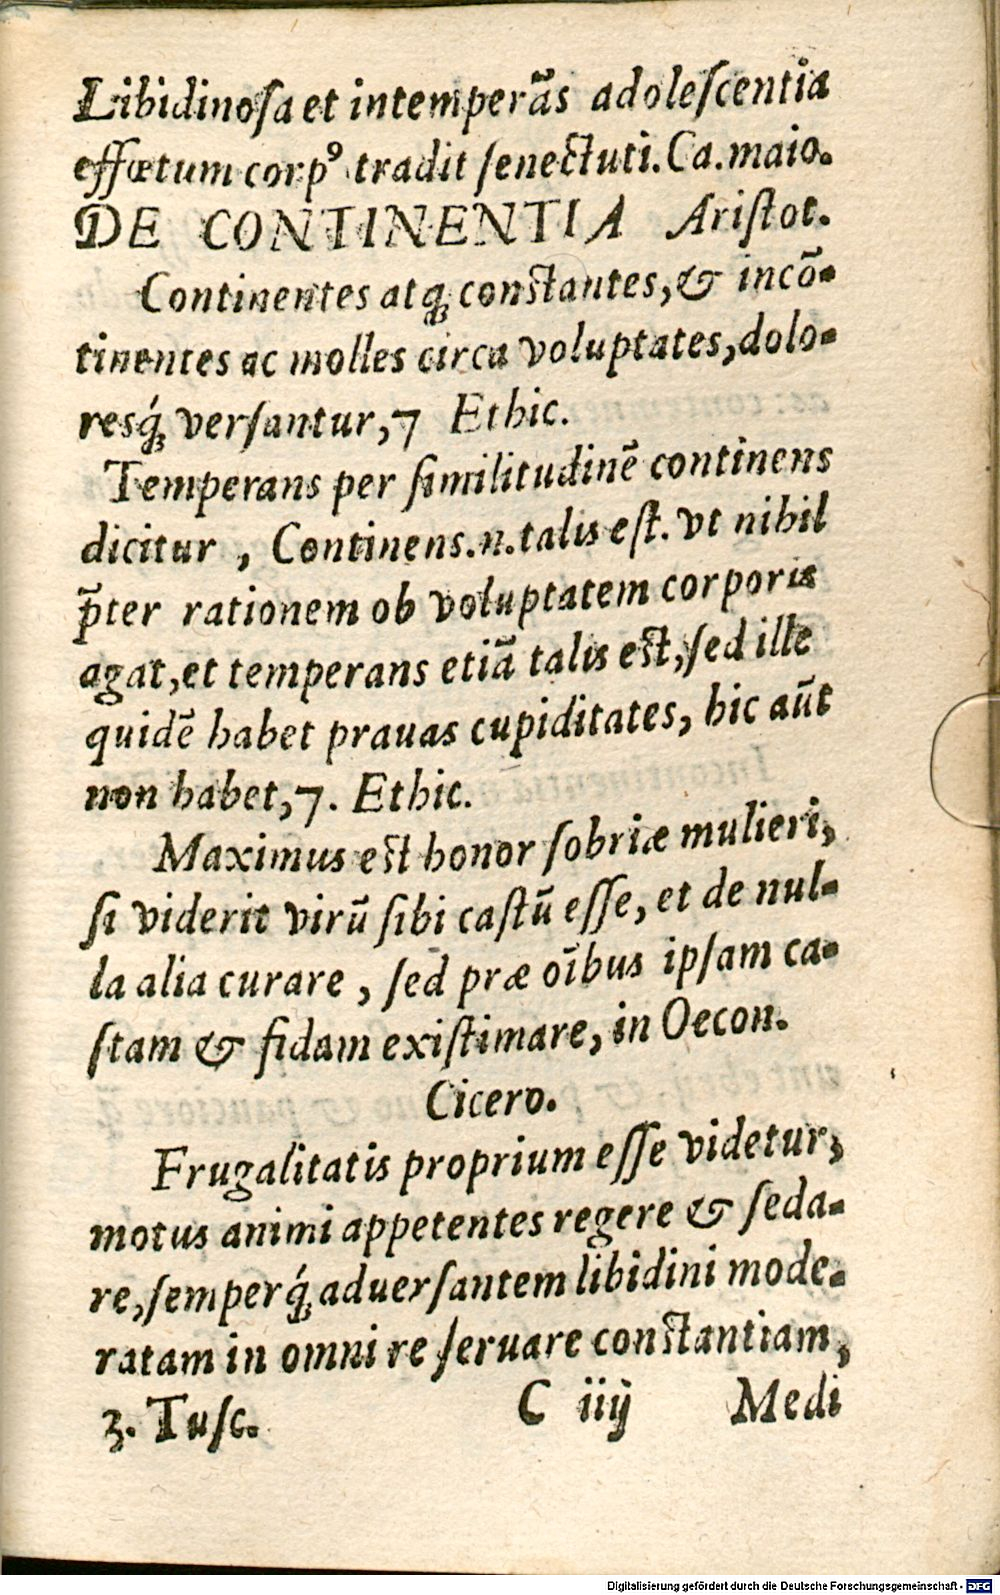 Libidinoſa et intemperãs adoleſcentia
effœtum corpꝰ tradit ſenectuti. Ca. maio.
DE CONTINENTIA Ariſtot.
Continentes atqꝫ conſtantes, & incõ-
tinentes ac molles circa voluptates, dolo-
resq́ꝫ verſantur, 7 Ethic.
Temperans per ſimilitudinẽ continens
dicitur , Continens .n. talis eſt. vt nihil
p̃ter rationem ob voluptatem corporis
agat, et temperans etiã talis eſt, ſed ille
quidẽ habet prauas cupiditates, hic aũt
non habet, 7. Ethic.
Maximus eſt honor ſobriæ mulieri,
ſi viderit virũ ſibi caſtũ eſſe, et de nul-
la alia curare , ſed præ oĩbus ipſam ca-
ſtam & fidam exiſtimare, in Oecon.
Cicero.
Frugalitatis proprium eſſe videtur,
motus animi appetentes regere & ſeda-
re, ſemperq́ꝫ aduerſantem libidini mode-
ratam in omni re ſeruare conſtantiam,
3. Tuſc. C iiij Medi
Digitalisierung gefördert durch die Deutsche Forschungsgemeinschaft - DFG